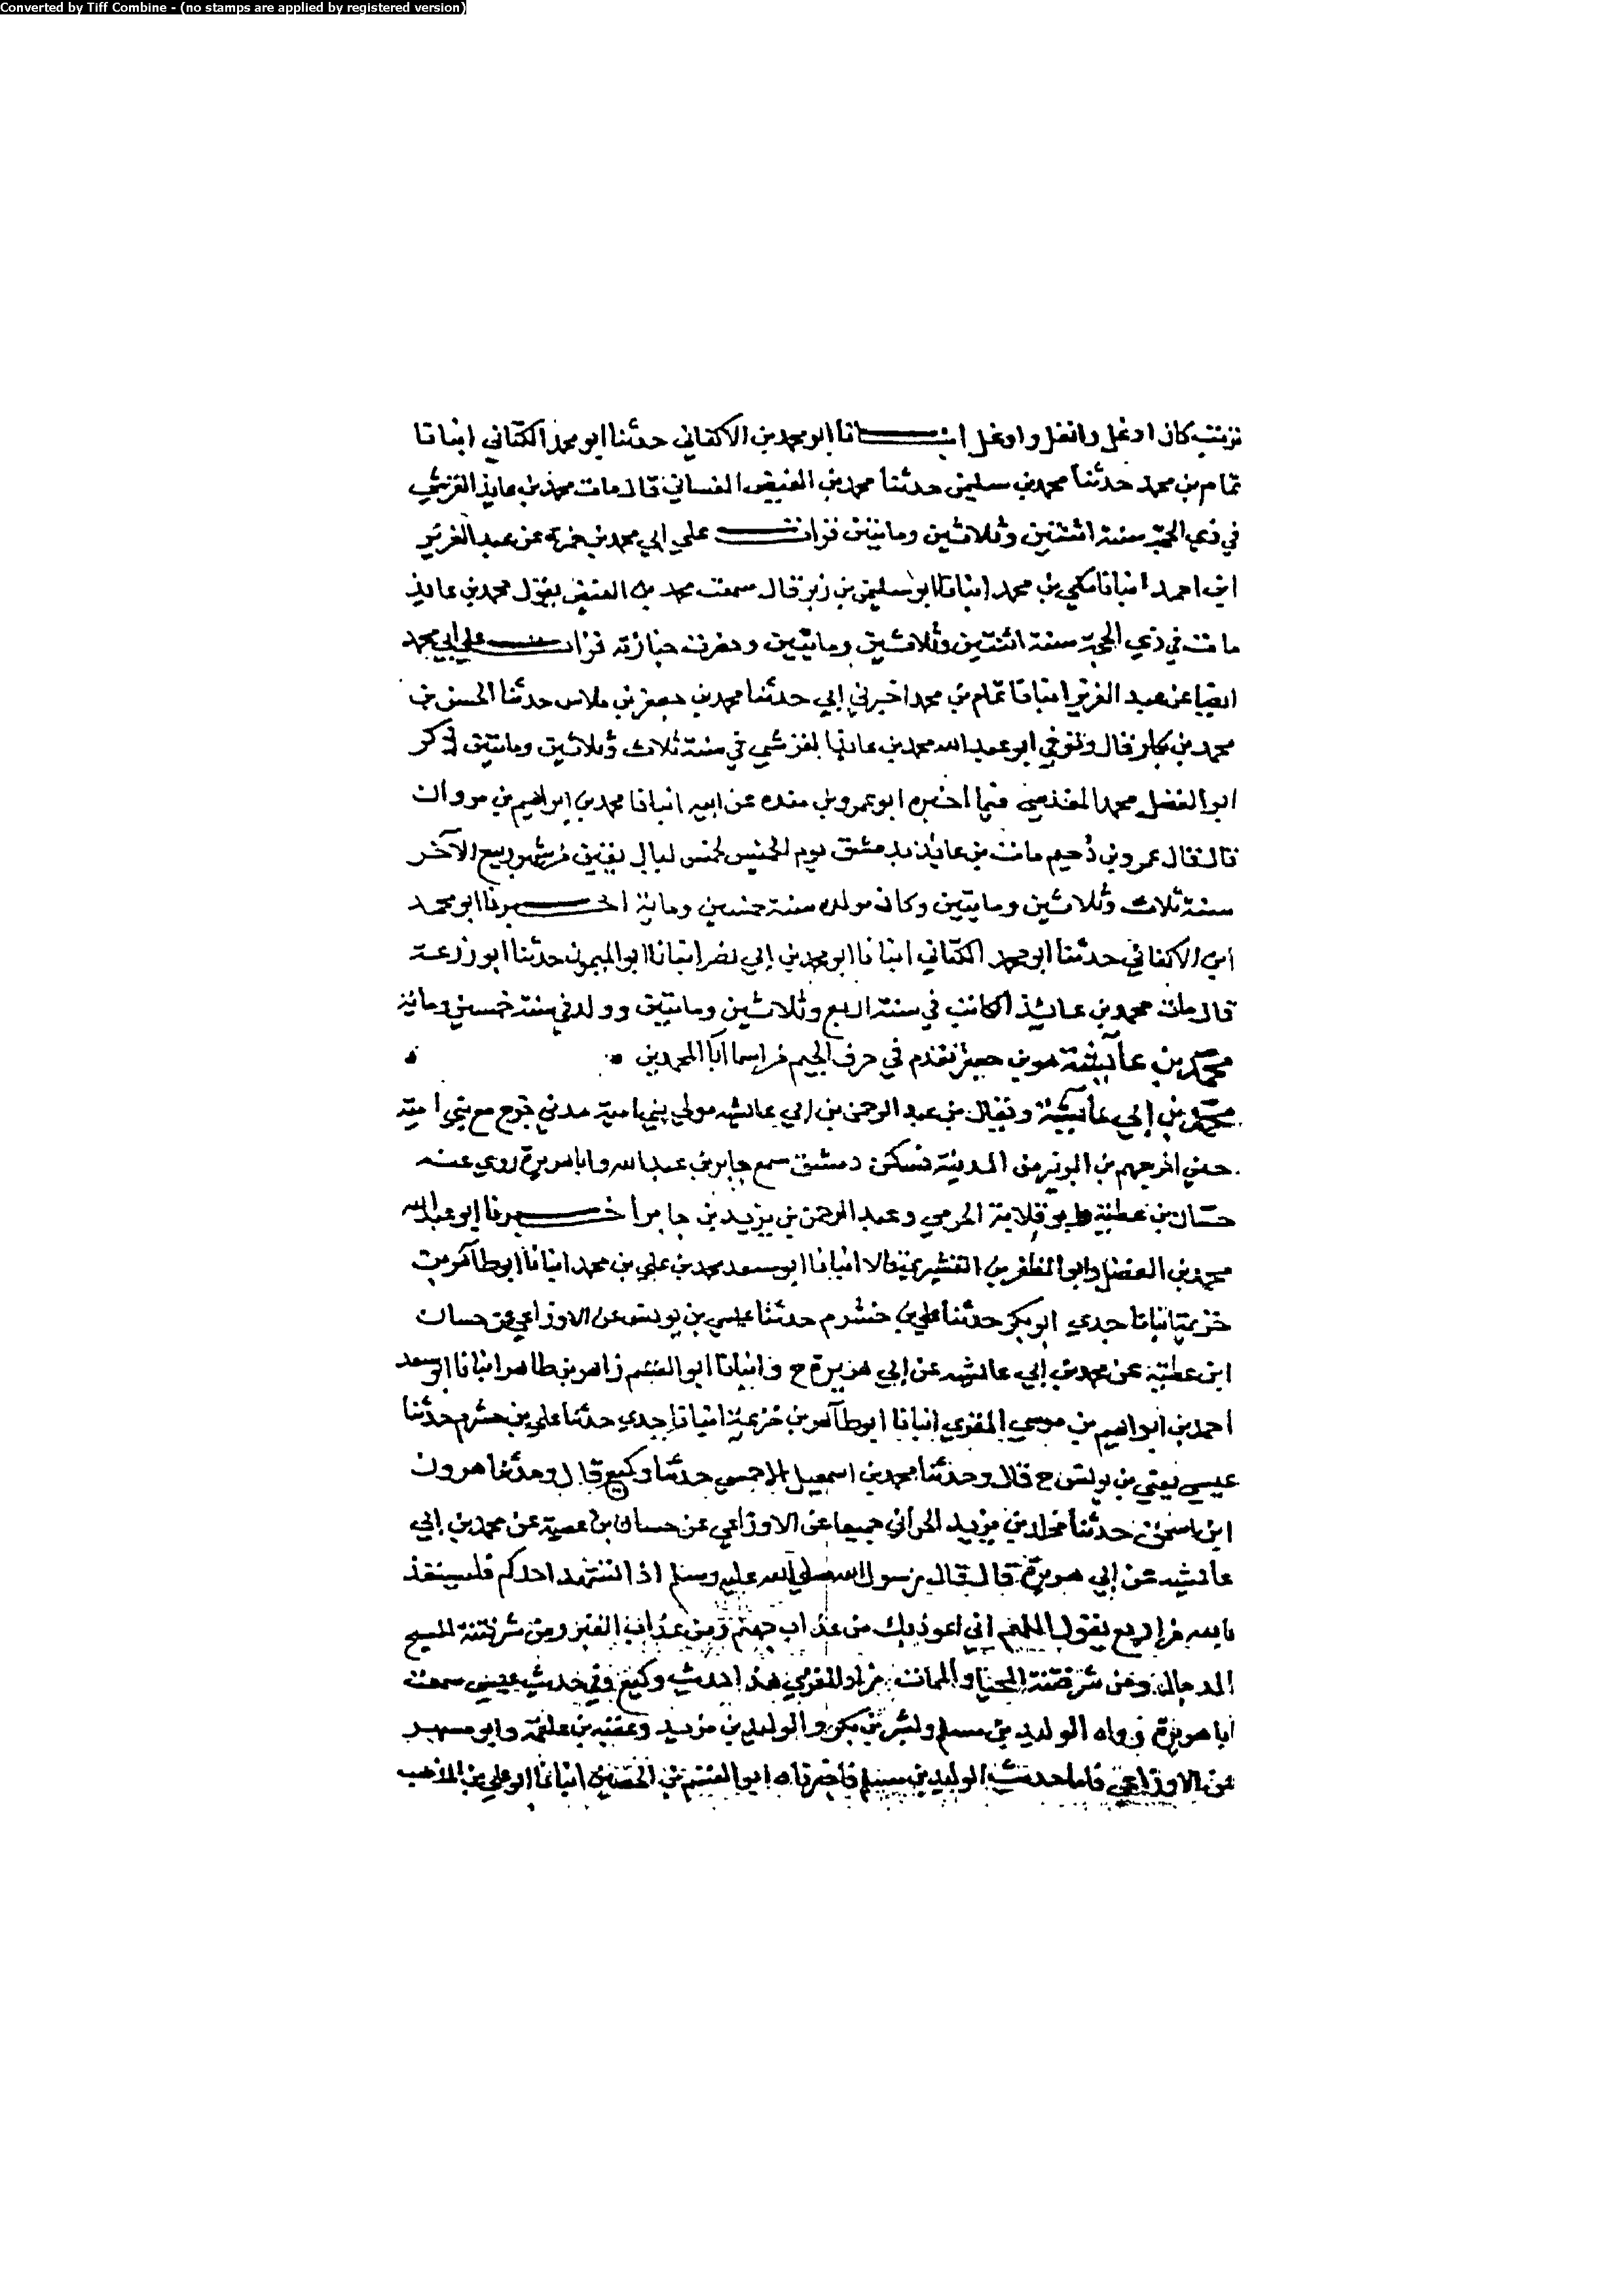 Converted by Tiff Combine - (no stamps are applied by registered version)
كان اوغل وانغل واوغل انبانا ابو محمد بن الاكفاني حدثنا ابو محمد الكتاني انبانا
تمام بن محمد حدثنا محمد بن سليمن حدثنا محمد بن الفيض الغساني قال مات محمد بن عايذ القرشي
في ذي الحجة سنة اثنتين وثلاثين ومايتين قرات على ابي محمد بن حمزة عن عبد العزيز
ابن احمد انبانا مكي بن محمد انبانا ابو سليمن بن زبر قال سمعت محمد بن الفيض يقول محمد بن عايذ
مات في ذي الحجة سنة اثنتين وثلاثين ومايتين وحضرت جنازته قرات علي ابي محمد
ايضا عن عبد العزيز انبانا تمام بن محمد اخبرني ابي حدثنا محمد بن جعفر بن ملاس حدثنا الحسن بن
محمد بن بكار قال وتوفي ابو عبد الله محمد بن عايذ القرشي في سنة ثلاث وثلاثين ومايتين ذكر
ابو الفضل محمد المقدسي فيما اخبره ابو عمرو بن منده عن ابيه انبانا محمد بن ابراهيم بن مروان
قال قال عمرو بن دحيم مات بن عايذ بدمشق يوم الخميس لخمس ليال بقين من شهر ربيع الآخر
سنة ثلاث وثلاثين ومايتين وكان مولده سنة خمسين وماية اخبرنا ابو محمد
ابن الاكفاني حدثنا ابو محمد الكتاني انبانا ابو محمد بن ابي نصر انبانا ابو الميمون حدثنا ابو زرعة
قال مات محمد بن عائذ الكاتب في سنة اربع وثلاثين ومايتين وولد في سنة خمسين وماية
محمد بن عآيشة هو بن جعفر تقدم في حرف الجيم من اسما آبا المحمدين
محمد بن ابي عآيشة ويقال بن عبد الرحمن بن ابي عائشه مولي بني امية مدني خرج مع بني امية
حين اخرجهم بن الزبير من المدينة فسكن دمشق سمع جابر بن عبد الله وابا هريرة روي عنه
حسان بن عطية وابو قلابة الجرمي وعبد الرحمن بن يزيد بن جابر اخبرنا ابو عبد الله
محمد بن الفضل وابو المظفر بن القشيري قالا انبانا ابو سعد محمد بن علي بن محمد انبانا ابو طاهر بن
خزيمة انبانا جدي ابو بكر حدثنا علي بن خشرم حدثنا عيسي بن يونس عن الاوزاعي عن حسان
ابن عطية عن محمد بن ابي عائشه عن ابي هريرة ح وانبانا ابو القسم زاهر بن طاهر انبانا ابو سعد
احمد بن ابراهيم بن موسي المقري انبانا ابو طاهر بن خزيمة انبانا جدي حدثنا علي بن خشرم حدثنا
عيسي يعني بن يونس ح قال وحدثنا محمد بن اسمعيل الاحمسي حدثنا وكيع قال وحدثنا هرون
ابن اسحق حدثنا مخلد بن يزيد الحراني جميعا عن الاوزاعي عن حسان بن عطية عن محمد بن ابي
عائشه عن ابي هريرة قال قال رسول الله صلي الله عليه وسلم اذا تشهد احدكم فليستعذ
بالله من اربع يقول اللهم اني اعوذ بك من عذاب جهنم ومن عذاب القبر ومن شر فتنة المسيح
الدجال ومن شر فتنة المحيا والممات زاد المقري هذا حديث وكيع وفي حديث عيسي سمعت
ابا هريرة رواه الوليد بن مسلم وبشر بن بكر والوليد بن مزيد وعقبه بن علقمة وابو مسهر
عن الاوزاعي فاما حديث الوليد بن مسلم فاخبرناه ابو القسم بن الحصين انبانا ابو علي بن المذهب